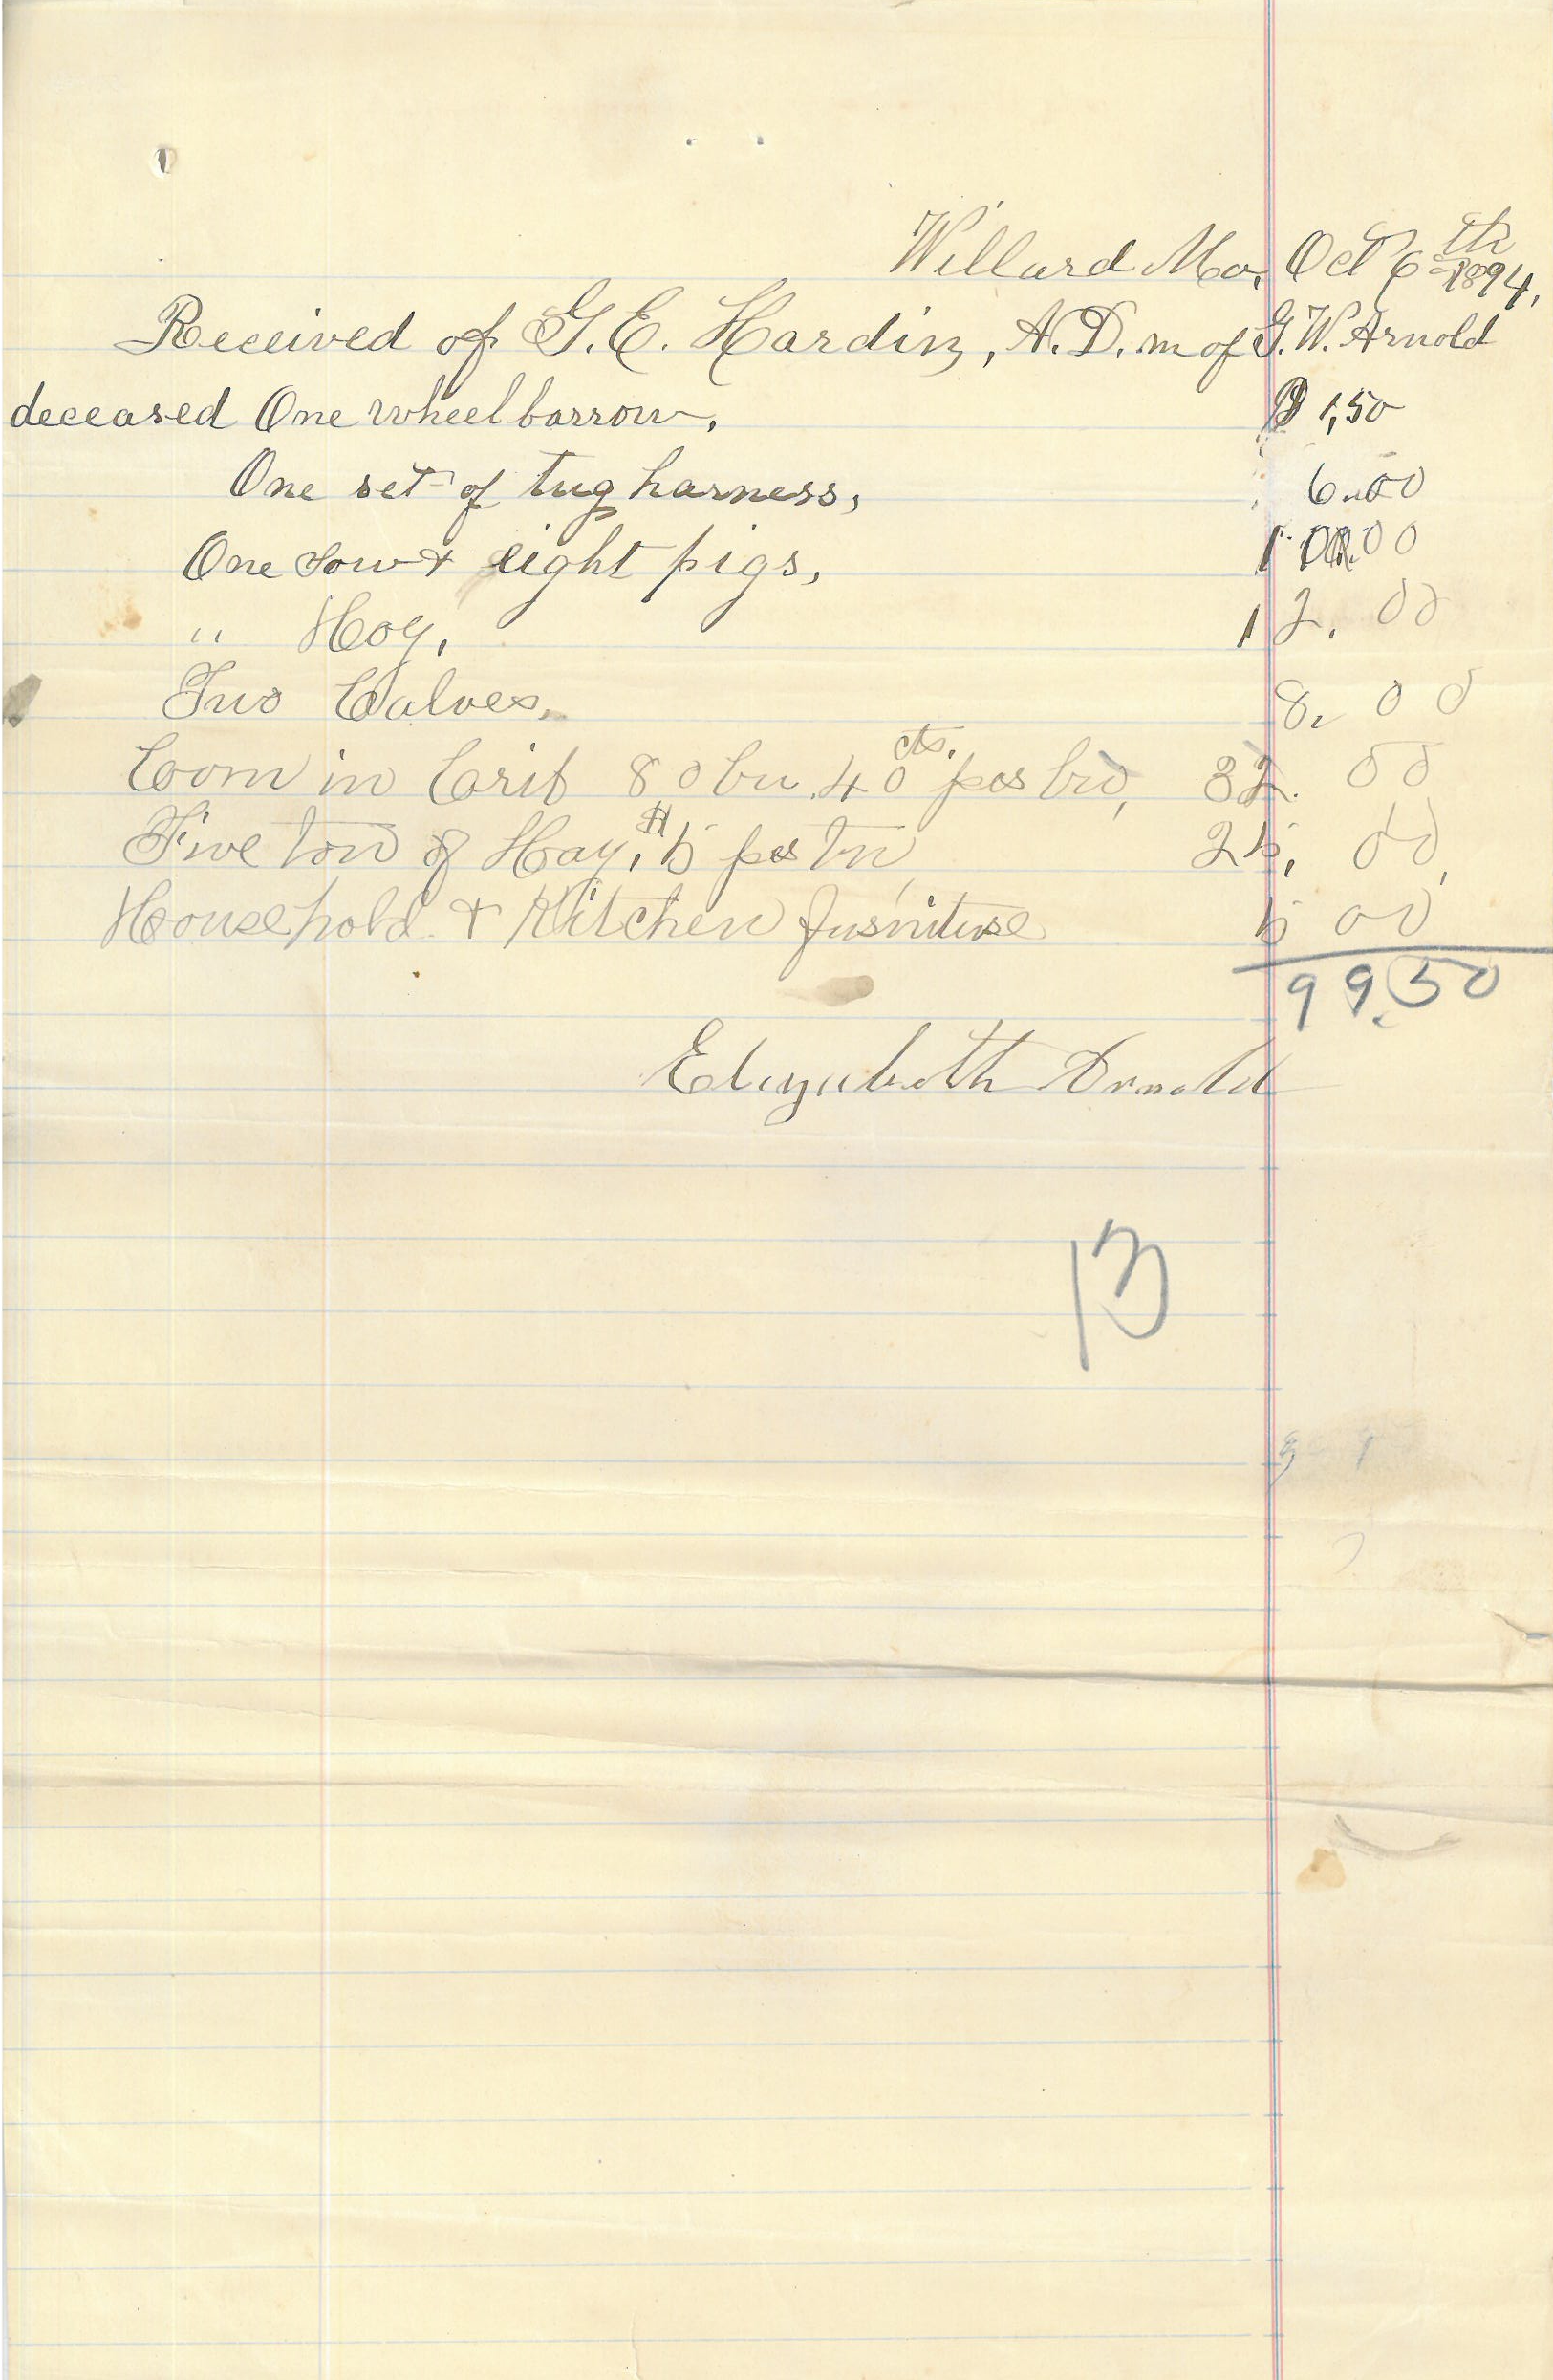 Willard Mo, Oct 6th 1894,
Received of G. E. Hardin, A. D. m of G. W. Arnold
deceased One wheelbarrow, $ 1,50
One set of tug harness, 6.00
One sow & eight pigs, 10.00
" Hog, 12. 00
Two Calves, 8. 00
Corn in Crib 80 bu. 40 cts. per bu, 32. 00
Five ton of Hay, $5 per ton 25. 00,
Household & Kitchen furniture 5 00
99.50
Elizabeth Arnold
13